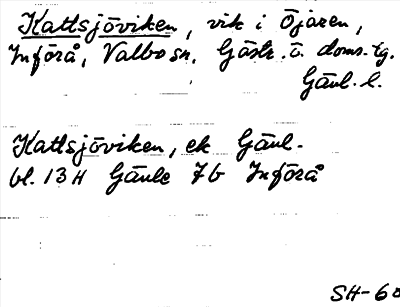 Kattsjöviken, vik i Öjaren,
Införå, Valbo sn, Gästr. ö. doms.tg.
Gävl. l.
Kattsjöviken, ek Gävl.
bl. 13 H Gävle 7b Införå
SH-60